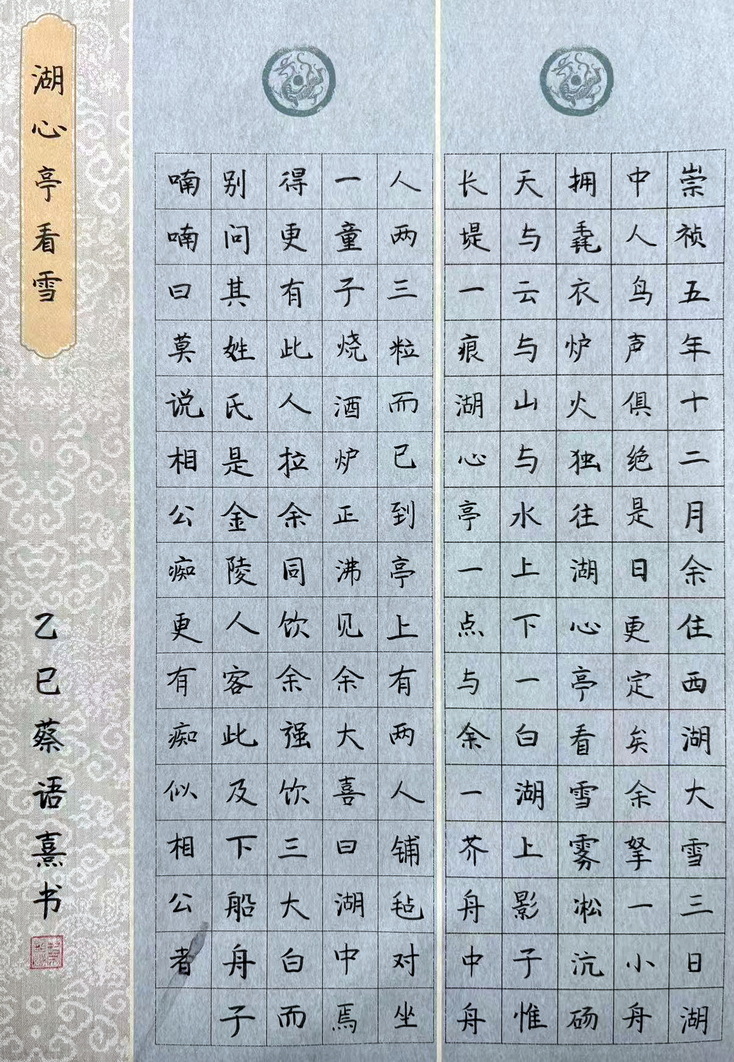 崇祯五年十二月余住西湖大雪三日湖
中人鸟声俱绝是日更定矣余拏一小舟
拥毳衣炉火独往湖心亭看雪雾凇沆砀
天与云与山与水上下一白湖上影子惟
长堤一痕湖心亭一点与余一芥舟中舟
人两三粒而已到亭上有两人铺毡对坐
一童子烧酒炉正沸见余大喜曰湖中焉
得更有此人拉余同饮余强饮三大白而
别问其姓氏是金陵人客此及下船舟子
喃喃曰莫说相公痴更有痴似相公者
湖心亭看雪
乙巳蔡语熹书